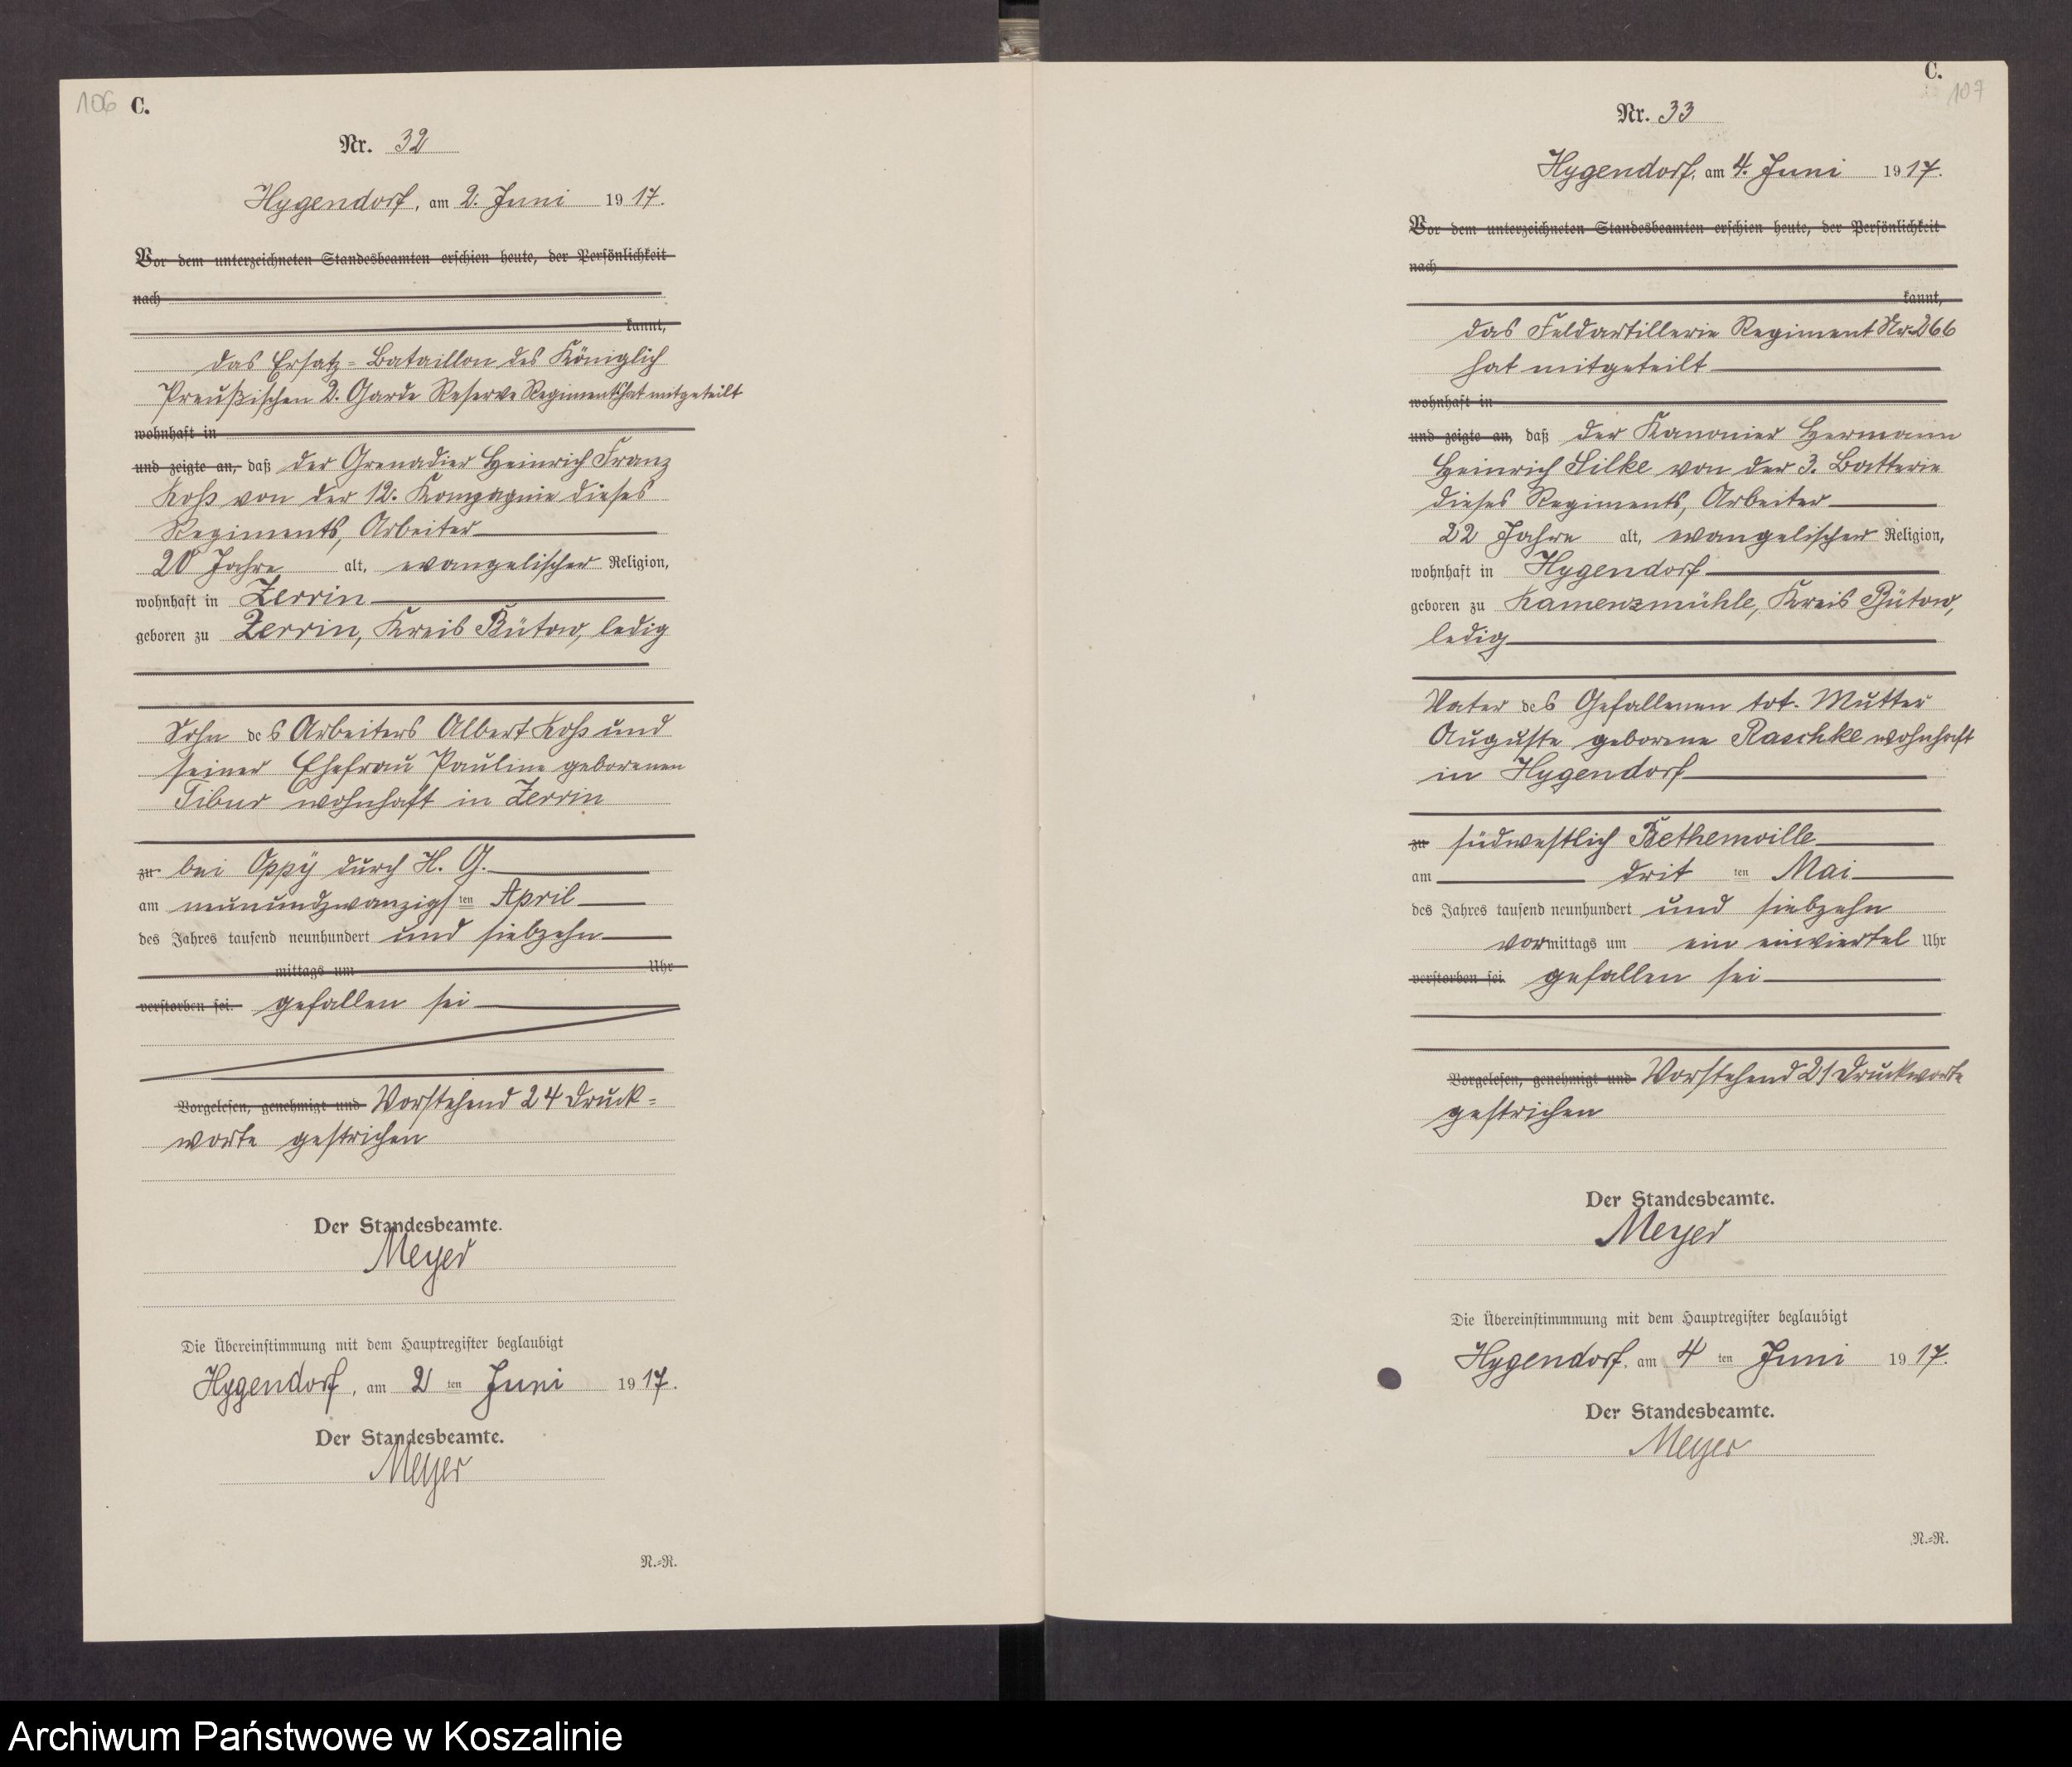 106 C.
Nr. 32
Hygendorf, am 2. Juni 1917.
Vor dem unterzeichneten Standesbeamten erschien heute, der Persönlichkeit
nach
kannt,
das Ersatz-Bataillon des Königlich
Preußischen 2. Garde Reserve Regiments hat mitgeteilt
wohnhaft in
und zeigte an, daß der Grenadier Heinrich Franz
Koß von der 12. Kompagnie dieses
Regiments, Arbeiter
20 Jahre alt, evangelischer Religion,
wohnhaft in Zerrin
geboren zu Zerrin, Kreis Bütow, ledig
Sohn des Arbeiters Albert Koß und
seiner Ehefrau Pauline geborenen
Tibur wohnhaft in Zerrin
zu bei Oppÿ durch H. G.
am neunundzwanzigsten April
des Jahres tausend neunhundert und siebzehn
mittags um Uhr
verstorben sei. gefallen sei
Vorgelesen, genehmigt und Vorstehend 24 Druck=
worte gestrichen
Der Standesbeamte.
Meyer
Die Übereinstimmung mit dem Hauptregister beglaubigt
Hygendorf, am 2ten Juni 1917.
Der Standesbeamte.
Meyer
N.=R.
C.
107
Nr. 33
Hygendorf, am 4. Juni 1917.
Vor dem unterzeichneten Standesbeamten erschien heute, der Persönlichkeit
nach
kannt,
das Feldartillerie Regiment Nr. 266
hat mitgeteilt
wohnhaft in
und zeigte an, daß der Kanonier Hermann
Heinrich Silke von der 3. Batterie
dieses Regiments, Arbeiter
22 Jahre alt, evangelischer Religion,
wohnhaft in Hygendorf
geboren zu Kamenzmühle, Kreis Bütow,
ledig
Vater des Gefallenen tot. Mutter
Auguste geborene Raschke wohnhaft
in Hygendorf
zu südwestlich Bethenville
am dritten Mai
des Jahres tausend neunhundert und siebzehn
vormittags um ein einviertel Uhr
verstorben sei. gefallen sei
Vorgelesen, genehmigt und Vorstehend 21 Druckworte
gestrichen
Der Standesbeamte.
Meyer
Die Übereinstimmmung mit dem Hauptregister beglaubigt
Hygendorf, am 4ten Juni 1917.
Der Standesbeamte.
Meyer
N.=R.
Archiwum Państwowe w Koszalinie